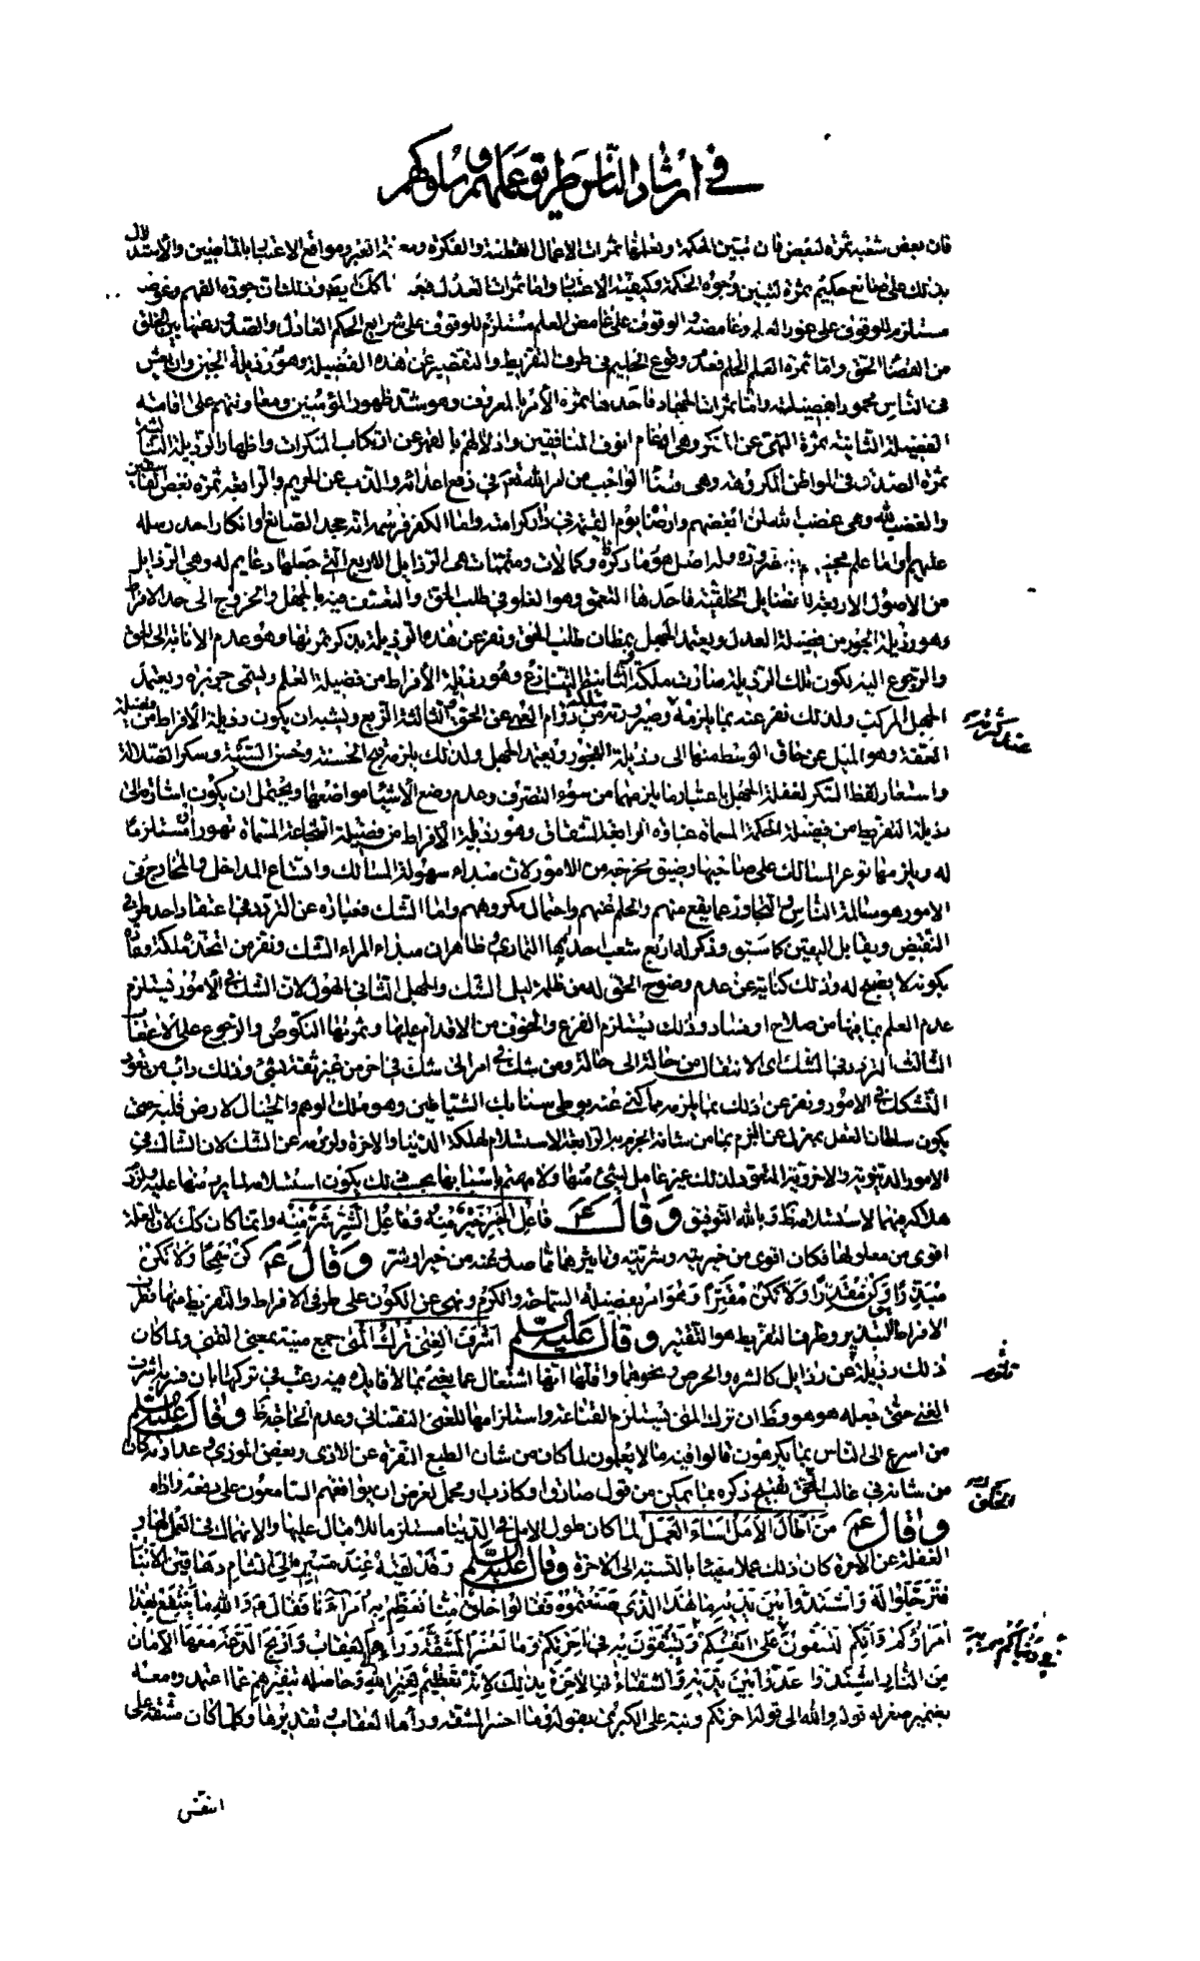 في ارشاد الناس طريق عملهم وسلوكهم
فان بعض شعبه ثمرة لبعض فان تبين الحكمة وتعلمها ثمرات الاعمال الفطنة والفكرة ومعرفة العبر ومواقع الاعتبار بالماضين والاستدلال
بذلك على صانع حكيم ثمرة لتبين وجوه الحكمة وكيفية الاعتبار واما ثمرات العدل فبعضها كذلك ايضا وذلك ان جودة الفهم وغوصه
مستلزم للوقوف على غور العلم وغامضه والوقوف على غامض العلم مستلزم للوقوف على شرايع الحكم العادل والصدر عنها بين الخلق
من القضاء الحق واما ثمرة الحلم فعدم وقوع الحليم في طرف التفريط والتقصير عن هذه الفضيلة وهو رذيلة الجبن وان يعيش
في الناس محمودا بفضيلته واما ثمرات الجهاد فاحدها ثمرة الامر بالمعروف وهو شد ظهور المؤمنين ومعاونتهم على اقامة
الفضيلة الثانية ثمرة النهي عن المنكر وهي ارغام انوف المنافقين واذلالهم بالقهر عن ارتكاب المنكرات واظهار الرذيلة الثالثة
ثمرة الصدق في المواطن المكروهة وهي قضاء الواجب من امر الله تعم في دفع اعدائه والذب عن الحريم والرابعة ثمرة بغض الفاسقين
والغضب لله وهي غضب الله لمن ابغضهم وارضاؤه يوم القيمة في دار كرامته واما الكفر فرسمه انه جحد الصانع او انكار احد رسله
عليهم او ما علم مجيئهم به بالضرورة وله اصل هو ما ذكره وكمالات ومتممات هي الرذايل الاربع التي جعلها دعايم له وهي الرذايل
من الاصول الاربعة للفضايل الخلقية فاحدها التعمق وهو الغلو في طلب الحق والتعسف فيه بالجهل والخروج الى حد الافراط
وهو رذيلة الجور من فضيلة العدل ويعتمد الجهل بمظان طلب الحق ونفر عن هذه الرذيلة بذكر ثمرتها وهو عدم الانابة الى الحق
والرجوع اليه لكون تلك الرذيلة صارت ملكة والثانية التنازع وهو رذيلة الافراط من فضيلة العلم ويسمى جربزة ويعتمد
الجهل المركب ولذلك نفر عنه بما يلزمه عند كثرته وصيرورته ملكة من دوام العمى عن الحق والثالثة الزيغ ويشبه ان يكون رذيلة الافراط من فضيلة
العفة وهو الميل عن حاق الوسط منها الى رذيلة الفجور ويعتمد الجهل ولذلك يلزمه قبح الحسنة وحسن السيئة وسكر الضلالة
واستعار لفظ السكر لغفلة الجهل باعتبار ما يلزمها من سوء التصرف وعدم وضع الاشياء مواضعها ويحتمل ان يكون اشارة الى
رذيلة التفريط من فضيلة الحكمة المسماة غباوة الرابعة الشقاق وهو رذيلة الافراط من فضيلة الشجاعة المسماة تهورا مستلزما
له ويلزمها توعر المسالك على صاحبها وضيق مخرجه من الامور لان مبداء سهولة المسالك واتساع المداخل والمخارج في
الامور هو مسالمة الناس والتجاوز عما يقع منهم والحلم عنهم واحتمال مكروههم واما الشك فعبارة عن التردد في اعتقاد احد طرفي
النقيض ويقابل اليقين كما سبق وذكر له اربع شعب احدها التماري وظاهر ان مبداء المراء الشك ونفر من اتخذه ملكة وعادة
بكونه لا يصبح له وذلك كناية عن عدم وضوح الحق له من ظلمة ليل الشك والجهل الثاني الهول لان الشك في الامور يستلزم
عدم العلم بما فيها من صلاح او فساد وذلك يستلزم الفزع والخوف من الاقدام عليها وثمرتها النكوص والرجوع على الاعقاب
الثالث التردد في الشك اي الانتقال من حالة الى حالة ومن شك في امر الى شك في اخر من غير ثقة بشيء وذلك دائب من تعود
التشكك في الامور ونفر عن ذلك بما يلزمه مما كنى عنه بوطي سنابك الشياطين وهو ملك الوهم والخيال لارض قلبه حتى
يكون سلطان العقل بمعزل عن الجزم بما من شانه الجزم به الرابعة الاستسلام لهلكة الدنيا والاخرة ولزومه عن الشك لان الشاك في
الامور الدنيوية والاخروية المتعود لذلك غير عامل لشيء منها ولا مهتم باسبابها بحسب ذلك يكون استسلامه لما يرد منها عليه فلزمه
هلاكه فيها لاستسلامه ظ وبالله التوفيق وقال عم فاعل الخير خير منه وفاعل الشر شر منه وانما كان كذلك لان العلة
اقوى من معلولها فكان اقوى من خيريته وشريته وتاثيرهما مما صدر عنه من خير او شر وقال عم كن سمحا ولا تكن
مبذرا وكن مقدرا ولا تكن مقترا وهو امر بفضيلة السماحة والكرم ونهى عن الكون على طرفي الافراط والتفريط منها فطرف
الافراط التبذير وطرف التفريط هو التقتير وقال عليه السلم اشرف الغنى ترك المنى جمع منية بمعنى التمني ولما كان
ذلك رذيلة عن رذايل كالشره والحرص ونحوهما واقلها انها اشتغال عما يعني بما لا فايدة فيه رغب في تركها بان فسر به اشرف
الغنى حتى جعله هو هو وظ ان ترك المنى يستلزم القناعة واستلزامها للغنى النفساني وعدم الحاجة ظ وقال عليه السلم
من اسرع الى الناس بما يكرهون قالوا فيه ما لا يعلمون لما كان من شان الطبع النفرة عن الاذى وبغض الموذي وعداوته كان
من شانه في غالب الخلق تقبيح ذكره بما يمكن من قول صادق او كاذب ومحمل لغرض ان يوافقهم السامعون على بغضه واذاه
وقال عم من اطال الامل اساء العمل لما كان طول الامل في الدنيا مستلزما للاقبال عليها والانهماك في العمل لها و
الغفلة عن الاخرة كان ذلك عملا سيئا بالنسبة الى الاخرة وقال عليه السلم وقد لقيه عند مسيره الى الشام دهاقين الانبار
فترجلوا له واشتدوا بين يديه ما هذا الذي صنعتموه فقالوا خلق منا نعظم به امراءنا فقال عم والله ما ينتفع بهذا
امراؤكم وانكم لتشقون على انفسكم وتشقون به في اخرتكم وما اخسر المشقة وراءها العقاب واربح الدعة معها الامان
من النار اشتدوا عدوا بين يديه والشقاء في الاخرة بذلك لانه تعظيم لغير الله وحاصله تنفيرهم عما اعتمدوه معه
بضمير صغراه قوله والله الى قوله اخرتكم ونبه على الكبرى بقوله وما اخسر المشقة وراءها العقاب وتقديرها وكلما كان مشقة على
انفس